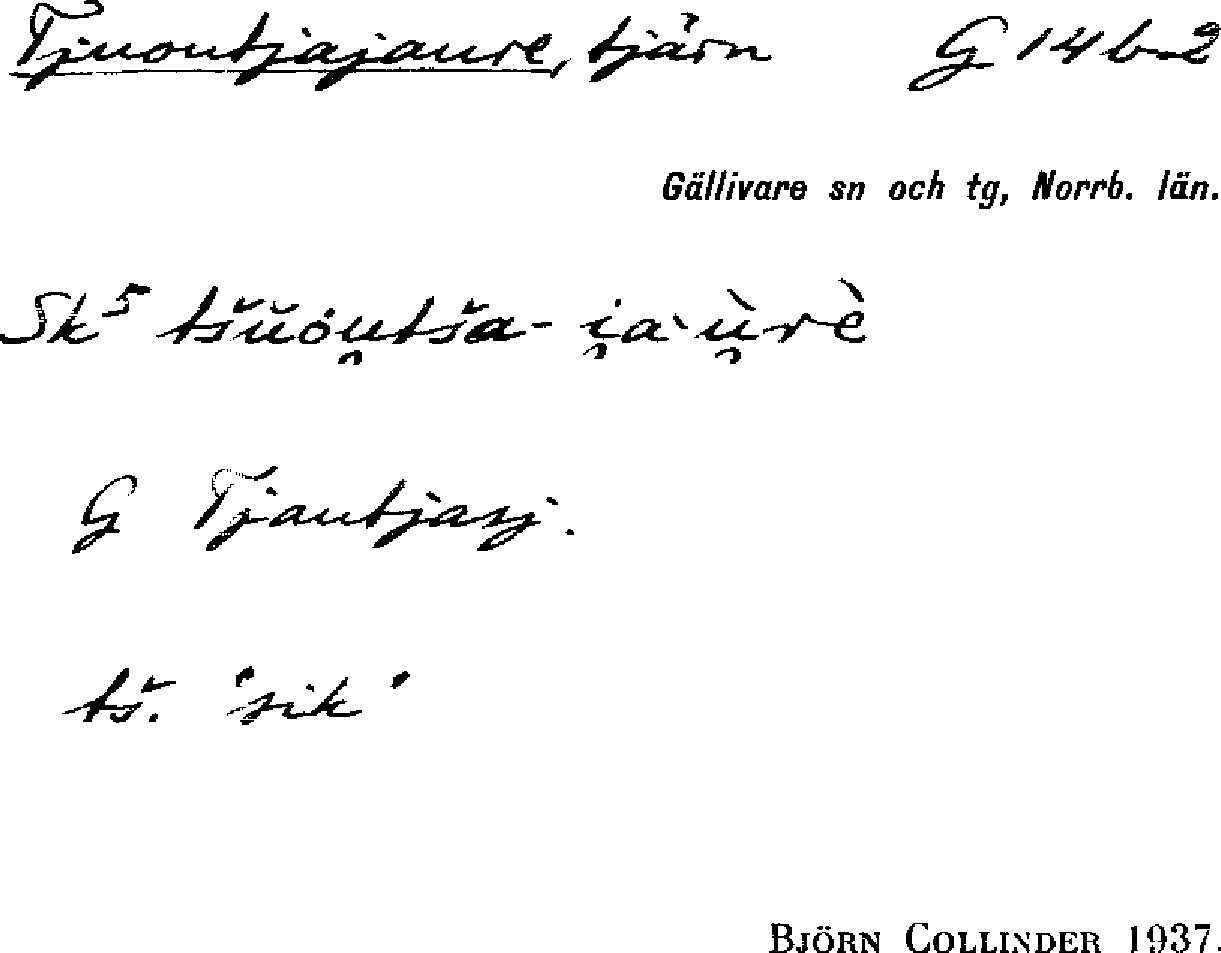 Tjuoutjajaure, tjärn G 14 b 2
Gällivare sn och tg, Norrb. län.
Sk⁵ tšŭȯu̯tša- i̯a`ù̯rè
G Tjautjasj.
tš. "sik"
BJÖRN COLLINDER 1937.